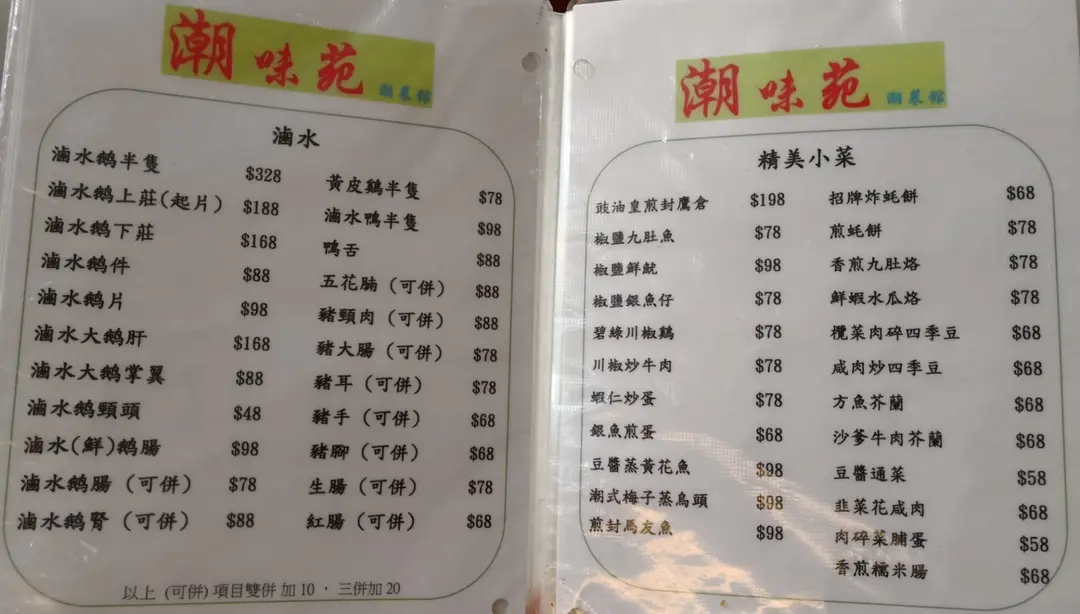 潮味苑 潮菜館
滷水
滷水鵝半隻 $328
滷水鵝上莊(起片) $188
滷水鵝下莊 $168
滷水鵝件 $88
滷水鵝片 $98
滷水大鵝肝 $168
滷水大鵝掌翼 $88
滷水鵝頸頭 $48
滷水(鮮)鵝腸 $98
滷水鵝腸 (可併) $78
滷水鵝腎 (可併) $88
黃皮鷄半隻 $78
滷水鴨半隻 $98
鴨舌 $88
五花腩 (可併) $88
豬頸肉 (可併) $88
豬大腸 (可併) $78
豬耳 (可併) $78
豬手 (可併) $68
豬腳 (可併) $68
生腸 (可併) $78
紅腸 (可併) $68
以上 (可併) 項目雙併 加 10 , 三併加 20
潮味苑 潮菜館
精美小菜
豉油皇煎封鷹倉 $198
椒鹽九肚魚 $78
椒鹽鮮魷 $98
椒鹽銀魚仔 $78
碧綠川椒鷄 $78
川椒炒牛肉 $78
蝦仁炒蛋 $78
銀魚煎蛋 $68
豆醬蒸黃花魚 $98
潮式梅子蒸烏頭 $98
煎封馬友魚 $98
招牌炸蚝餅 $68
煎蚝餅 $78
香煎九肚烙 $78
鮮蝦水瓜烙 $78
欖菜肉碎四季豆 $68
咸肉炒四季豆 $68
方魚芥蘭 $68
沙爹牛肉芥蘭 $68
豆醬通菜 $58
韭菜花咸肉 $68
肉碎菜脯蛋 $58
香煎糯米腸 $68